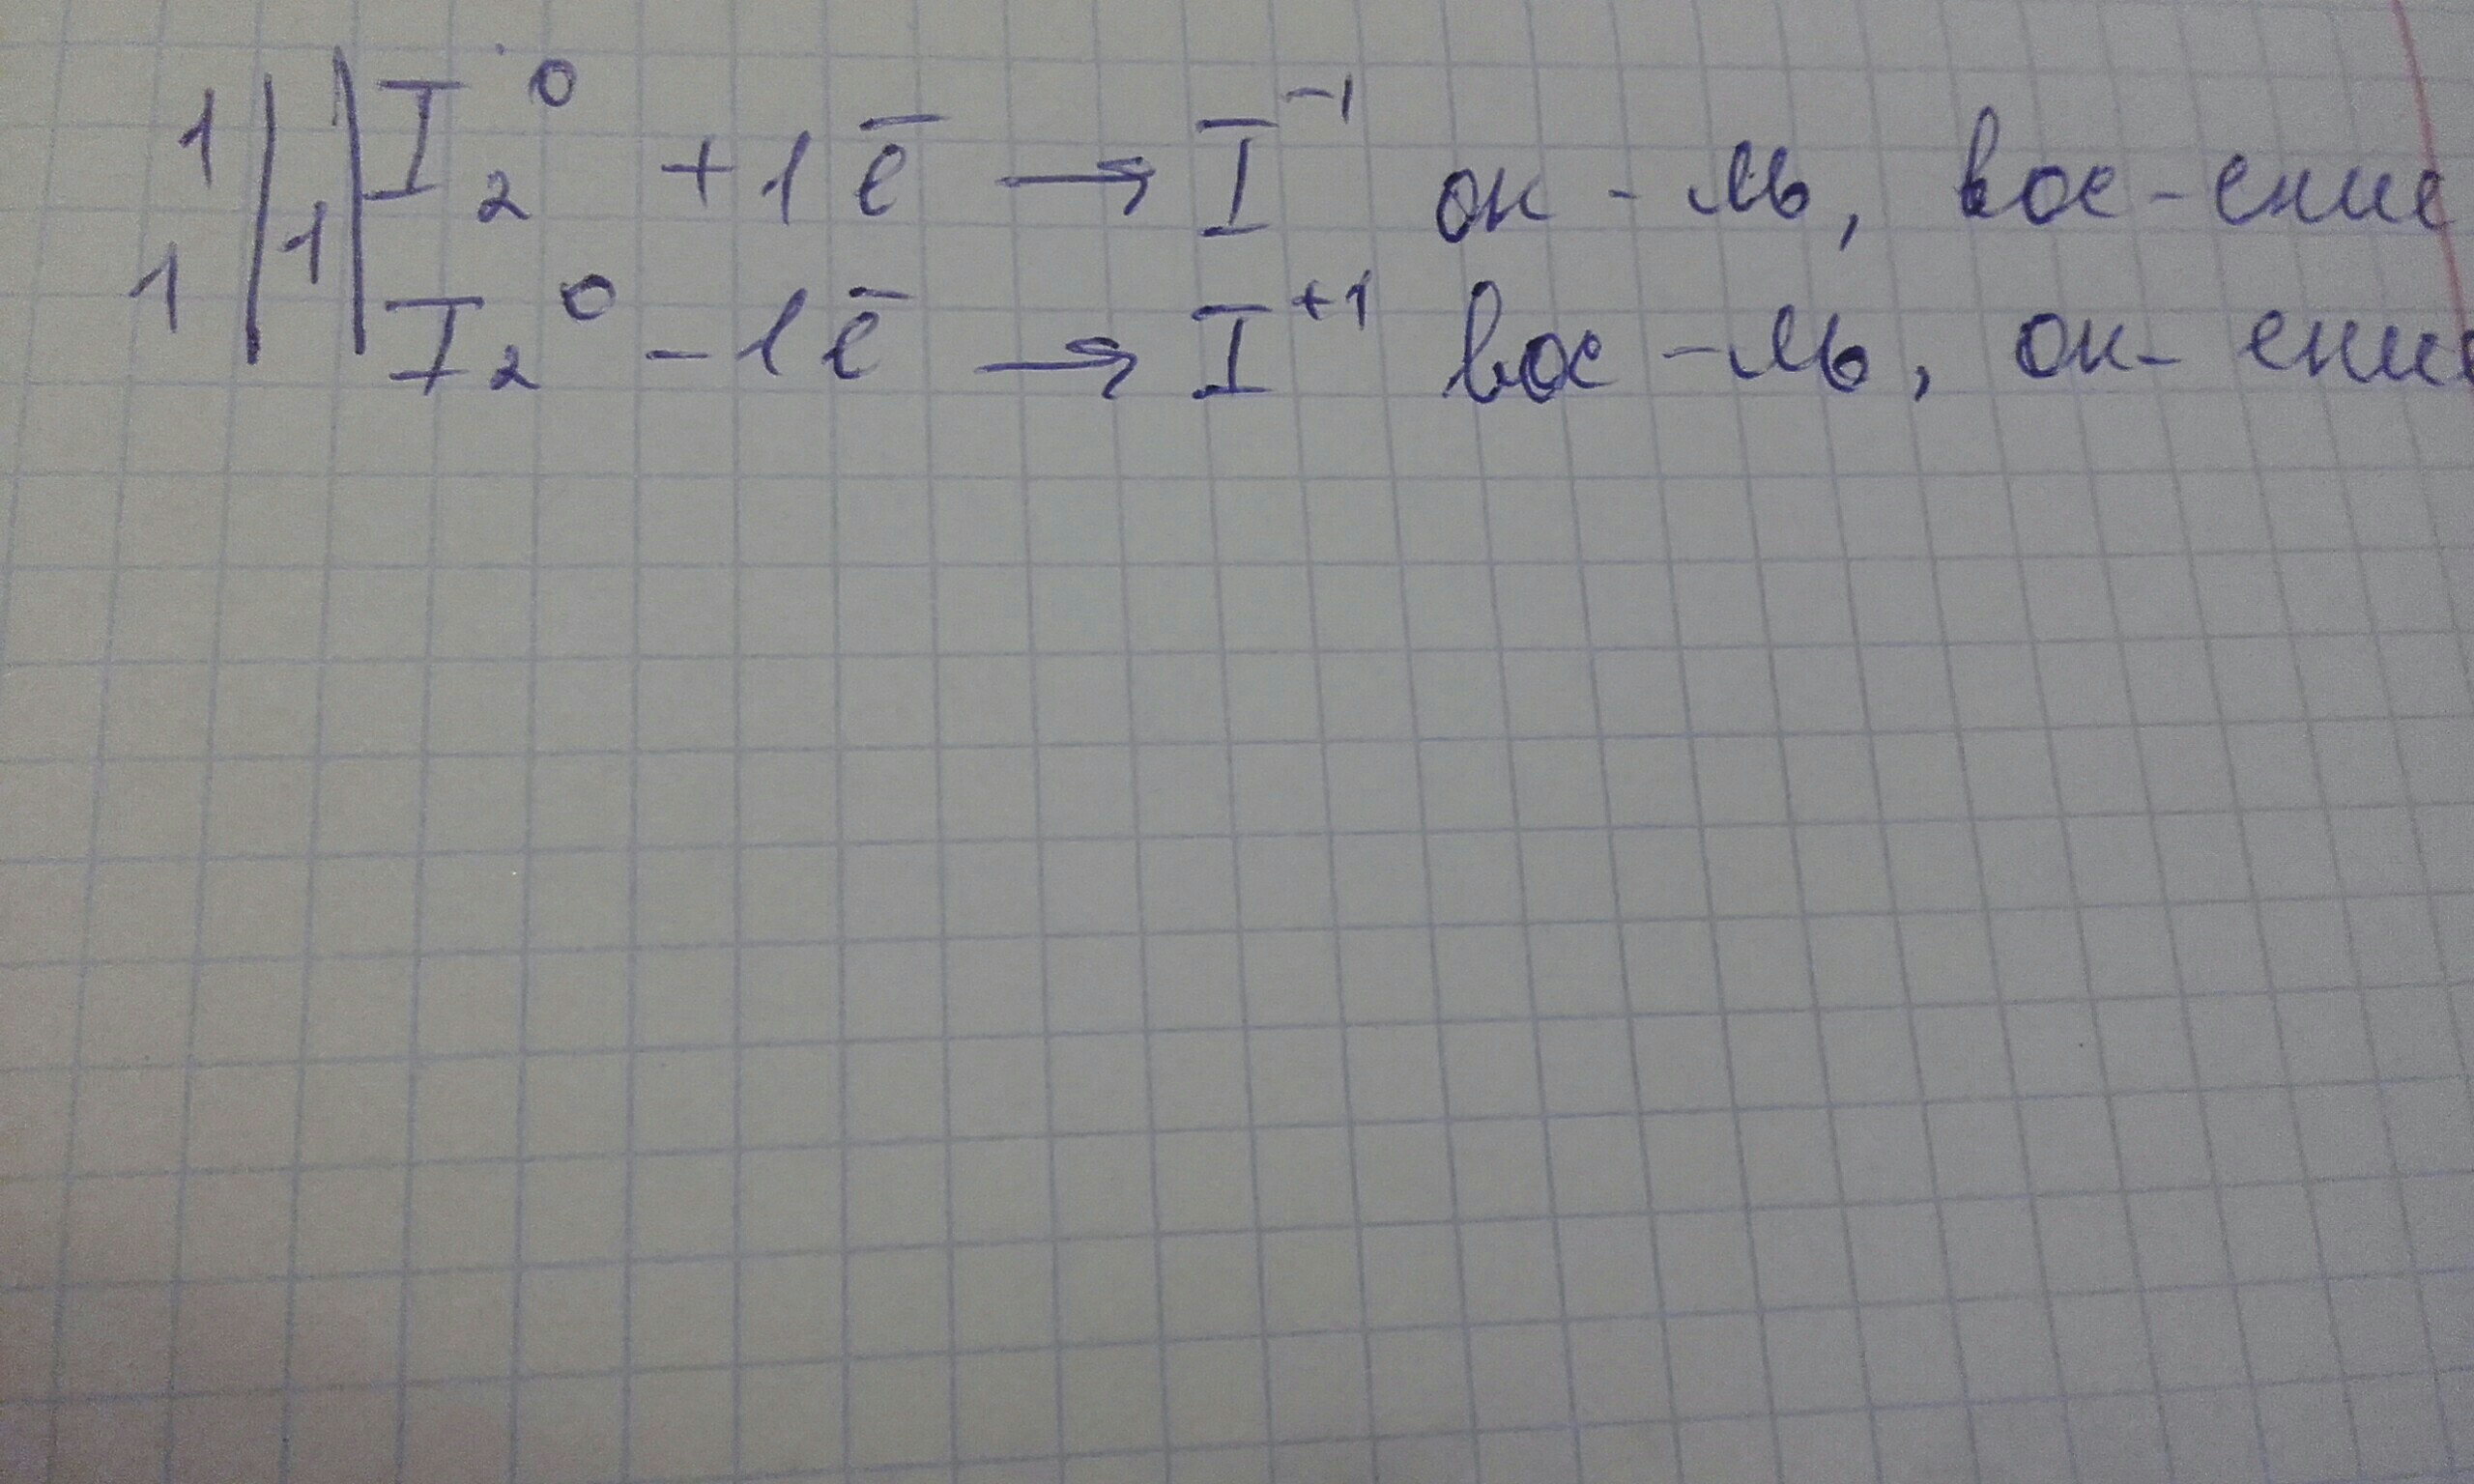 1 | | I₂⁰ + 1ē → I⁻¹ ок-ль, вос-ение
1 | 1 | I₂⁰ - 1ē → I⁺¹ вос-ль, ок-ение